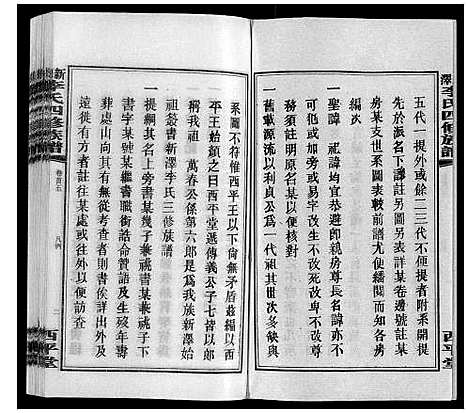 五代一提外或餘二三代不便提者附系開提
先於派名下譁註另圖另表註明某卷邊號註某
房某支世系圖表較前譜尤便繙閱而知各房
編次
一聖諱 祀諱均宜恭避即親房尊長名諱亦不
可或犯如旁或易字改生不改死改卑不改尊
務須註明原名某以便核對
一舊載源流以利貞公為一代祖世次多缺與
系圖不符惟西平王以下尚無矛盾茲編以西
平王始顏之曰西平堂遞傳義公子七皆以郎
稱我 萬春公係第六郎是為我族新澤始
祖叢書新澤李氏三修族譜
一提綱其名上旁書某幾子兼祧書某兼祧子
字某號某繼書職銜誥命贊語及生歿年壽
葬處山向其有無從考者則書俟詳出外及
遠徙有方者註往某處或往外以便訪查
李氏四修族譜
卷首五
李氏四修族譜
西平堂
西平堂